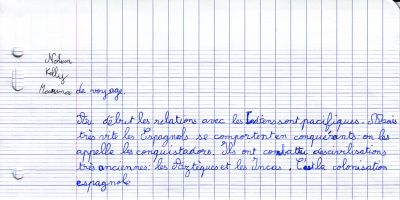 Nolwen
Kelly
de voyage.
Au début les relations avec les Indiens sont pacifiques. Mais
très vite les Espagnols se comportent en conquérants: on les
appelle les conquistadors. Ils ont combattu des civilisations
très anciennes: les Aztèques et les Incas. C'est la colonisation
espagnole